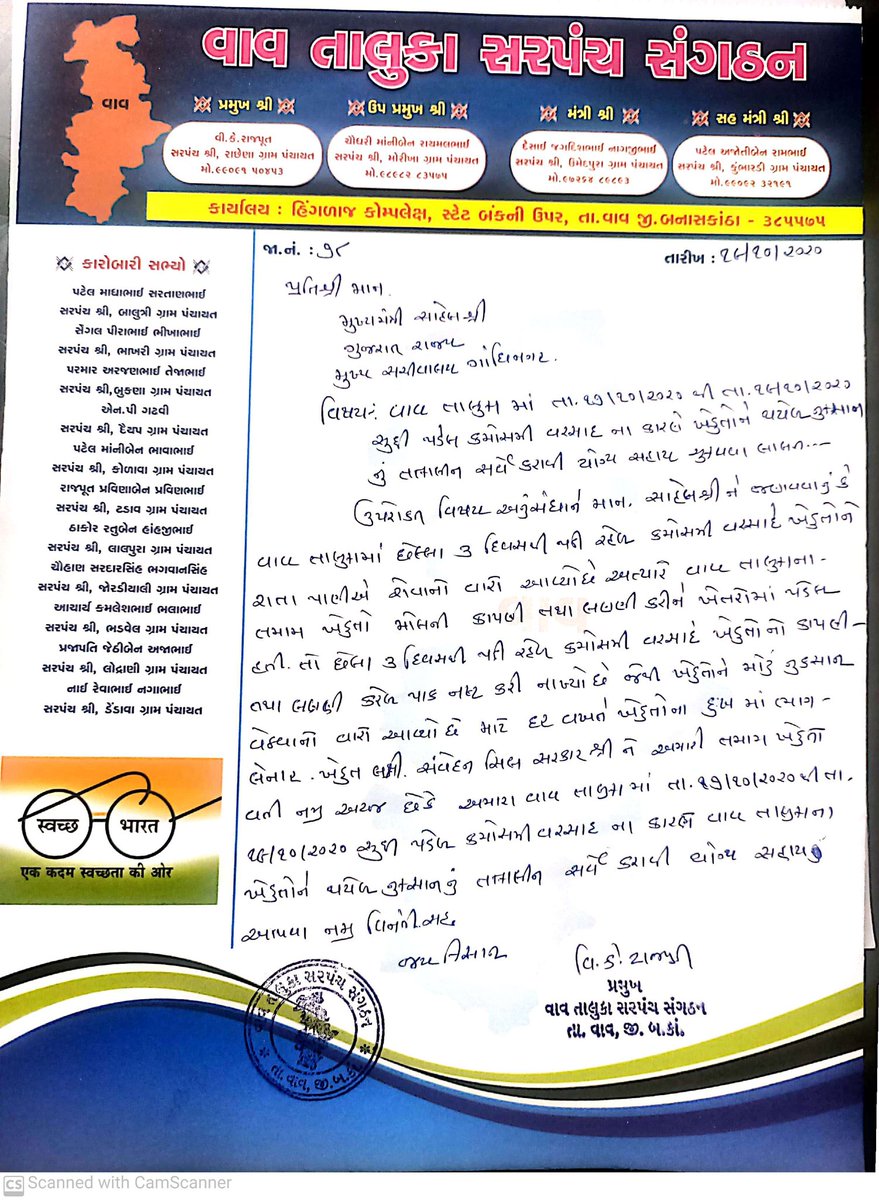 વાવ તાલુકા સરપંચ સંગઠન
વાવ
પ્રમુખ શ્રી
વી.કે.રાજપૂત
સરપંચ શ્રી, રાછેણા ગ્રામ પંચાયત
મો.૯૯૦૯૧ ૫૦૪૫૩
ઉપ પ્રમુખ શ્રી
ચૌધરી માંનીબેન રાયમલભાઈ
સરપંચ શ્રી, મોરીખા ગ્રામ પંચાયત
મો.૯૮૯૮૨ ૮૩૫૭૫
મંત્રી શ્રી
દેસાઈ જગદિશભાઈ નાગજીભાઈ
સરપંચ શ્રી, ઉમેદપુરા ગ્રામ પંચાયત
મો.૯૭૨૬૪ ૮૯૮૯૩
સહ મંત્રી શ્રી
પટેલ અજોતીબેન રામભાઈ
સરપંચ શ્રી, કુંભારડી ગ્રામ પંચાયત
મો.૯૯૦૯૨ ૩૨૧૯૧
કાર્યાલય : હિંગળાજ કોમ્પલેક્ષ, સ્ટેટ બંકની ઉપર, તા.વાવ જી.બનાસકાંઠા - ૩૮૫૫૭૫
કારોબારી સભ્યો
પટેલ માધાભાઈ સરતાણભાઈ
સરપંચ શ્રી, બાલુત્રી ગ્રામ પંચાયત
સેંગલ પીરાભાઈ ભીખાભાઈ
સરપંચ શ્રી, ભાખરી ગ્રામ પંચાયત
પરમાર અરજણભાઈ તેજાભાઈ
સરપંચ શ્રી,બુકણા ગ્રામ પંચાયત
એન.પી ગઢવી
સરપંચ શ્રી, દૈયપ ગ્રામ પંચાયત
પટેલ માંનીબેન ભાવાભાઈ
સરપંચ શ્રી, કોળાવા ગ્રામ પંચાયત
રાજપૂત પ્રવિણાબેન પ્રવિણભાઈ
સરપંચ શ્રી, ટડાવ ગ્રામ પંચાયત
ઠાકોર રતુબેન હાંહજીભાઈ
સરપંચ શ્રી, લાલપુરા ગ્રામ પંચાયત
ચૌહાણ સરદારસિંહ ભગવાનસિંહ
સરપંચ શ્રી, જોરડીયાલી ગ્રામ પંચાયત
આચાર્ય કમલેશભાઈ ભલાભાઈ
સરપંચ શ્રી, ભડવેલ ગ્રામ પંચાયત
પ્રજાપતિ જેઠીબેન અજાભાઈ
સરપંચ શ્રી, લોદ્રાણી ગ્રામ પંચાયત
નાઈ રેવાભાઈ નગાભાઈ
સરપંચ શ્રી, ડેંડાવા ગ્રામ પંચાયત
स्वच्छ भारत
एक कदम स्वच्छता की ओर
જા.નં. : ૭૮
તારીખ : ૧૯/૧૦/૨૦૨૦
પ્રતિશ્રી માન.
મુખ્યમંત્રી સાહેબશ્રી
ગુજરાત રાજ્ય
મુખ્ય સચીવાલય ગાંધિનગર.
વિષય:- વાવ તાલુકા માં તા.૧૭/૧૦/૨૦૨૦ થી તા.૧૯/૧૦/૨૦૨૦
સુધી પડેલ કમોસમી વરસાદ ના કારણે ખેડુતોને થયેલ નુકસાન
નું તાત્કાલીન સર્વે કરાવી યોગ્ય સહાય આપવા બાબત...
ઉપરોક્ત વિષય અનુસંધાને માન. સાહેબશ્રીને જણાવવાનું કે
વાવ તાલુકામાં છેલ્લા ૩ દિવસથી પડી રહેલ કમોસમી વરસાદે ખેડુતોને
રાતા પાણીએ રોવાનો વારો આવ્યો છે અત્યારે વાવ તાલુકાના
તમામ ખેડુતો મોલની કાપણી તથા લણણી કરીને ખેતરોમાં પડેલ
હતી. તો છેલ્લા ૩ દિવસથી પડી રહેલ કમોસમી વરસાદે ખેડુતોનો કાપણી-
તથા લણણી કરેલ પાક નષ્ટ કરી નાખ્યો છે જેથી ખેડુતોને મોટું નુકસાન
વેઠવાનો વારો આવ્યો છે માટે દર વખતે ખેડુતોના દુખ માં ભાગ-
લેનાર ખેડુત લક્ષી. સંવેદન સિલ સરકાર શ્રી ને અમારી તમામ ખેડુતો
વતી નમ્ર અરજ છેકે અમારા વાવ તાલુકામાં તા.૧૭/૧૦/૨૦૨૦ થી તા.
૧૯/૧૦/૨૦૨૦ સુધી પડેલ કમોસમી વરસાદ ના કારણે વાવ તાલુકાના
ખેડુતોને થયેલ નુકસાનનું તાત્કાલીન સર્વે કરાવી યોગ્ય સહાય
આપવા નમ્ર વિનંતી સહ
જય કિસાન
વિ.કે. રાજપુત
પ્રમુખ
વાવ તાલુકા સરપંચ સંગઠન
તા. વાવ, જી. બ.કાં.
વાવ તાલુકા સરપંચ સંગઠન
તા.વાવ, જી.બ.કાં.
CS Scanned with CamScanner